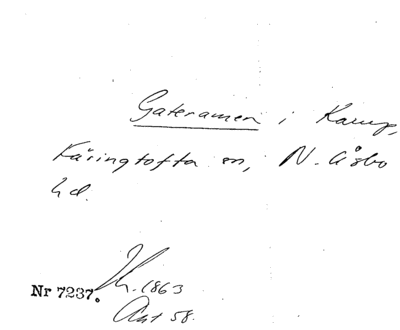 Gateramen i Kamp,
Färingtofta sn, N. Åsbo
hd.
Nr 7237.
1863
Ant 58.